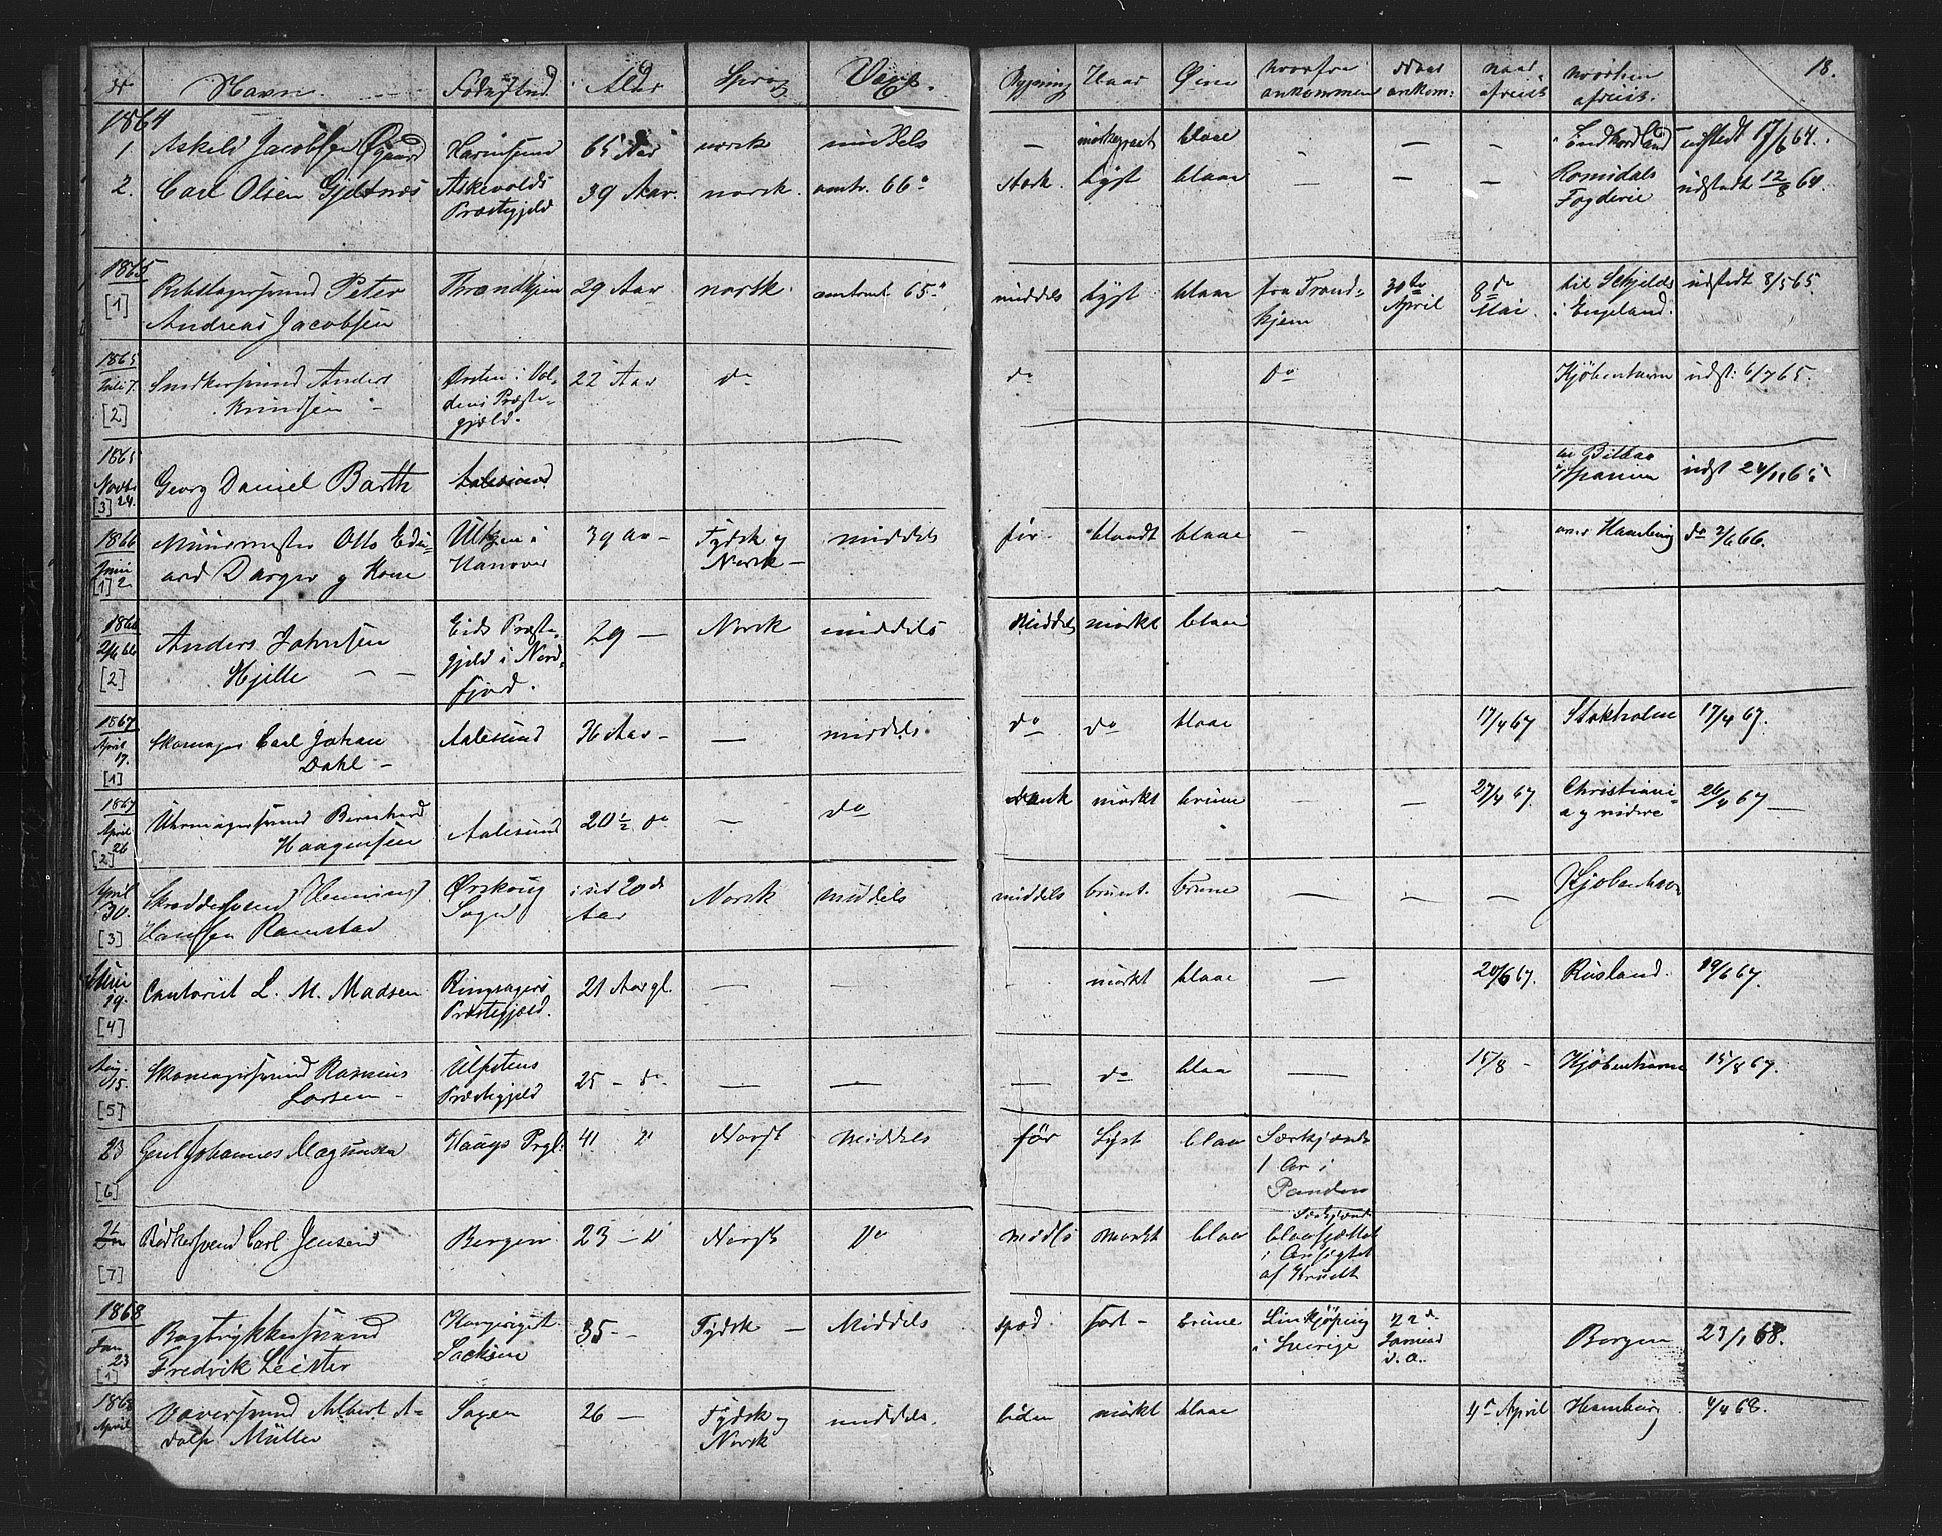 N Navn Fødested Alder Sprog Væxt. Bygning Haar Øine hvorfra ankommen naar ankom: naar afreist hvorhen afreist. 18.
1864
1 Askild Jacobsen 65 Aar norsk middels — mørkegraat blaae — — — udstedt 17/6 64.
2. Carl Olsen Gjeltnæs Askevolds Præstegjeld 39 Aar. norsk. omtr. 66" stærk. lyst blaae — — — Romsdals Fogderie udstedt 12/8 64.
1865
[1] Peter Andreas Jacobsen Throndhjem 29 Aar norsk. omtrent 65" middels lyst blaae fra Trond-
hjem 30te April 8de Mai til Schjelds i Engeland. udstedt 8/5 65.
1865
Juli 7.
[2] Snedkersvend Anders Knudsen Ørsten i Vol-
dens Præste-
gjeld. 22 Aar do do do Kjøbenhavn udst: 6/7 65.
1865
Novbr 24.
[3] Georg Daniel Barth Aalesund Bilbao Spanien udst 24/11 65
1866
Juni 2
[1] Muurmester Otto Edu-
ard Kone i Hanover 39 Aar — Tydsk og Norsk — middels før blondt blaae — Hamburg do 2/6 66.
1866
[2] Anders Johnsen Hjelle — — Eids Præste-
gjeld i Nord-
fjord. 29 — Norsk middels Middels mørkt blaae
1867
April 17.
[1] Skomager Carl Johan Dahl — Aalesund 36 Aar — — middels do do blaae 17/4 67 Stokholm 17/4 67.
1867
April 26
[2] Uhrmagersvend Bernhard Haagensen Aalesund 20½ do — do mørkt brune — — 27/4 67. Christiani-
a og videre 26/4 67 —
April 30.
[3] Skræddersvend Henning Hansen Ramstad Ørskoug Sogn i sit 20de Aar Norsk middels middels bruunt. brune — — — Kjøbenhavn
Juni 19.
[4] Cantorist L. M. Madsen Ringsagers Præstegjeld. 21 Aar gl. — — mørkt blaae — 20/6 67. Rusland. 19/6 67.
Aug. 15.
[5] Skomagersvend Rasmus Larsen — Ulfstens Præstegjeld 25 — do — — — do blaa — 15/8 — Kjøbenhavn 15/8 67.
23
[6] Johannes Magnussen Haugs Prgl: 41 Norsk Middels før Lyst blaa Særkjende
1 Ar i
Panden
[7] Bødkersvend Carl Jensen Bergen 23 — Norsk Do middls mørkt blaa Særkjende
i Ansigtet
af Krudt
1868
Jan 23
[1] Bogtrykkersvend Fredrik Leister Kongeriget Sachsen 35 — Tydsk — Middels spæd sort — brune Linkjøping i Sverige 22d Januar d. A. Bergen 23/1 68.
1868
April Væversvend Albert A-
dolf Müller Sagen 26 — Tydsk og Norsk middels. liden mørkt blaae 4de April Hamburg 4/4 68.